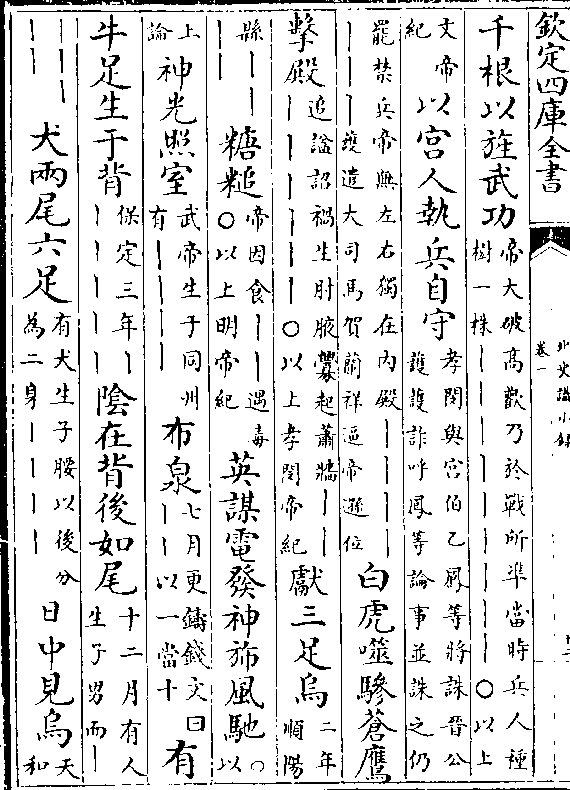 欽定四庫全書
北史識小録
卷一
千根以旌武功 帝大破高歡乃於戰所凖當時兵人種
樹一株——————〇以上
文帝
紀 以宮人執兵自守 孝閔與宮伯乙鳳等將誅晉公
護護詐呼鳳等論事並誅之仍
罷禁兵帝無左右獨在内殿————
———護遣大司馬賀蘭祥逼帝遜位 白虎噬驂蒼鷹
擊殿 追諡詔禍生肘腋釁起蕭牆——
——————〇以上孝閔帝紀 獻三足烏 二年
順陽
縣——
—— 糖 帝因食——遇毒
〇以上明帝紀 英謀電發神斾風馳 〇
以
上
論 神光照室 武帝生于同州
有———— 布泉 七月更鑄錢文曰
——以一當十 有
牛足生于背 保定三年—
————— 陰在背後如尾 十二月有人
生子男而—
———
—— 犬兩尾六足 有犬生子腰以後分
為二身———— 日中見烏 天
和